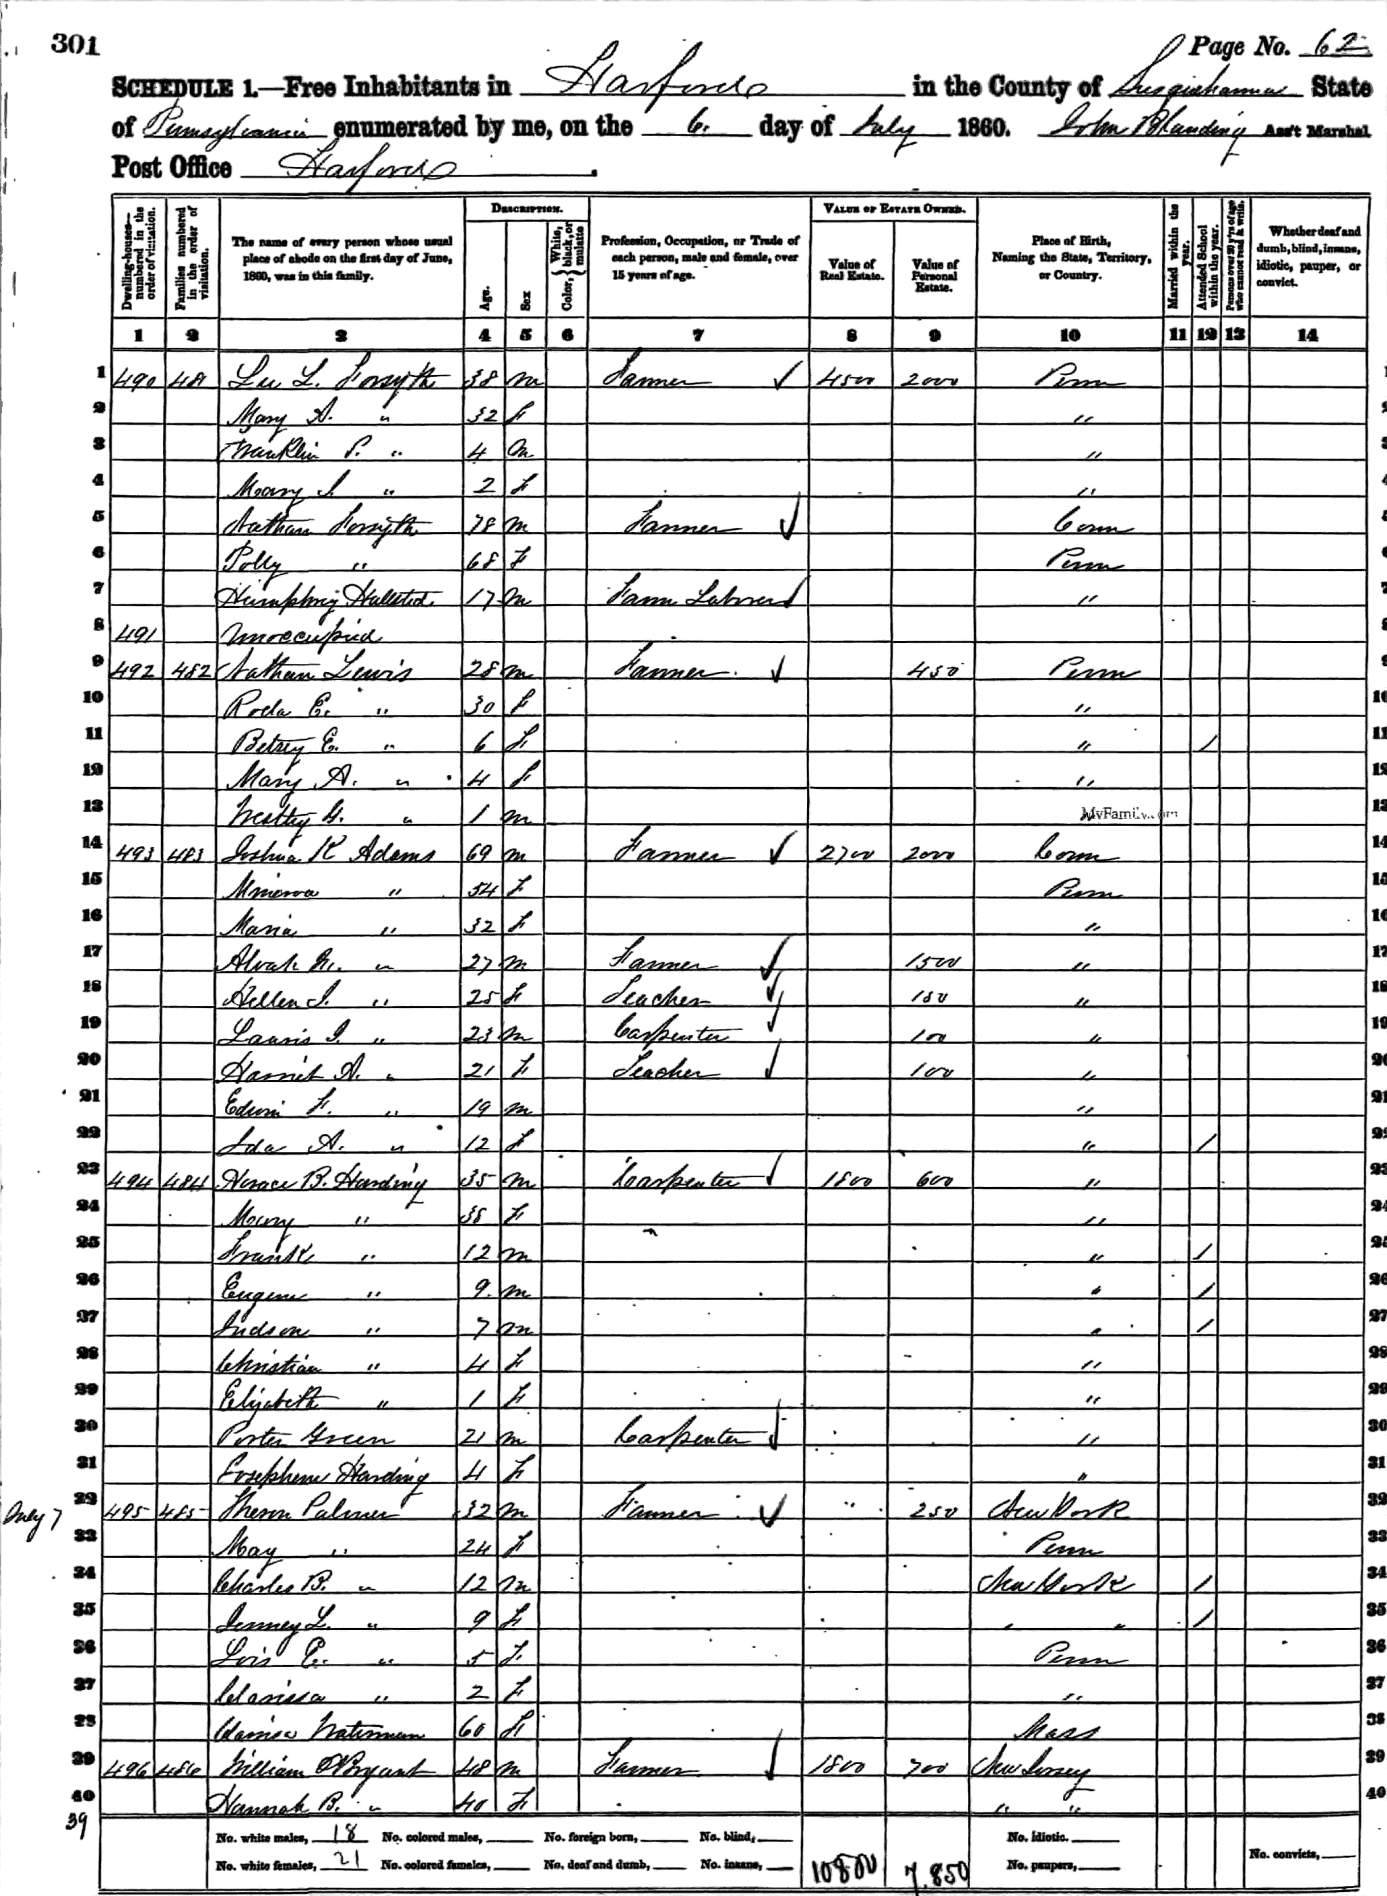 301
Page No. 62
SCHEDULE 1.—Free Inhabitants in Harford in the County of Susquehanna State
of Pennsylvania enumerated by me, on the 6. day of July 1860. John Blanding Ass't Marshal
Post Office Harford.
Dwelling-houses—numbered in the order of visitation.
Families numbered in the order of visitation.
The name of every person whose usual place of abode on the first day of June, 1860, was in this family.
DESCRIPTION.
Age.
Sex
Color, { White, black, or mulatto
Profession, Occupation, or Trade of each person, male and female, over 15 years of age.
VALUE OF ESTATE OWNED.
Value of Real Estate.
Value of Personal Estate.
Place of Birth, Naming the State, Territory, or Country.
Married within the year.
Attended School within the year.
Persons over 20 y'rs of age who cannot read & write.
Whether deaf and dumb, blind, insane, idiotic, pauper, or convict.
1 2 3 4 5 6 7 8 9 10 11 12 13 14
1 490 481 Lee L. Forsyth 38 m Farmer ✓ 4500 2000 Penn
2 Mary A. " 32 f "
3 Franklin P. " 4 m "
4 Mary J. " 2 f "
5 Nathan Forsyth 78 m Farmer ✓ Conn
6 Polly " 68 f Penn
7 Humphrey Hallsted. 17 m Farm Laborer ✓ "
8 491 Unoccupied
9 492 482 Nathan Lewis 28 m Farmer. ✓ 450 Penn
10 Roda E. " 30 f "
11 Betsey E. " 6 f " /
12 Mary A. " 4 f "
13 Westley G. " 1 m MyFamily.com
14 493 483 Joshua K Adams 69 m Farmer ✓ 2700 2000 Conn
15 Minerva " 54 f Penn
16 Maria " 32 f "
17 Alvah M. " 27 m Farmer ✓ 1500 "
18 Hellen J. " 25 f Teacher ✓ 150 "
19 " 23 m Carpenter ✓ 100 "
20 Harriet A. " 21 f Teacher ✓ 100 "
21 Edwin F. " 19 m "
22 Ida A. " 12 f " /
23 494 484 Horace B. Harding 35 m Carpenter ✓ 1800 600 "
24 Mary " 38 f "
25 Frank " 12 m " /
26 Eugene " 9 m " /
27 Judson " 7 m " /
28 Christian " 4 f "
29 Elizabeth " 1 f "
30 Porter Green 21 m Carpenter ✓ "
31 Josephene Harding 4 f "
July 7 32 495 485 Theron Palmer 32 m Farmer ✓ " 250 New York
33 May " 24 f Penn
34 Charles B. " 12 m New York /
35 Jenney L. " 9 f " " /
36 Lois E. " 5 f Penn
37 Clarissa " 2 f "
38 Waterman 60 f Mass
39 496 486 William O Bryant 48 m Farmer ✓ 1800 700 New Jersey
40 Hannah B. " 40 f " "
39
No. white males, 18 No. colored males, No. foreign born, No. blind, No. idiotic.
No. white females, 21 No. colored females, No. deaf and dumb, No. insane, 10800 7.850 No. paupers, No. convicts,